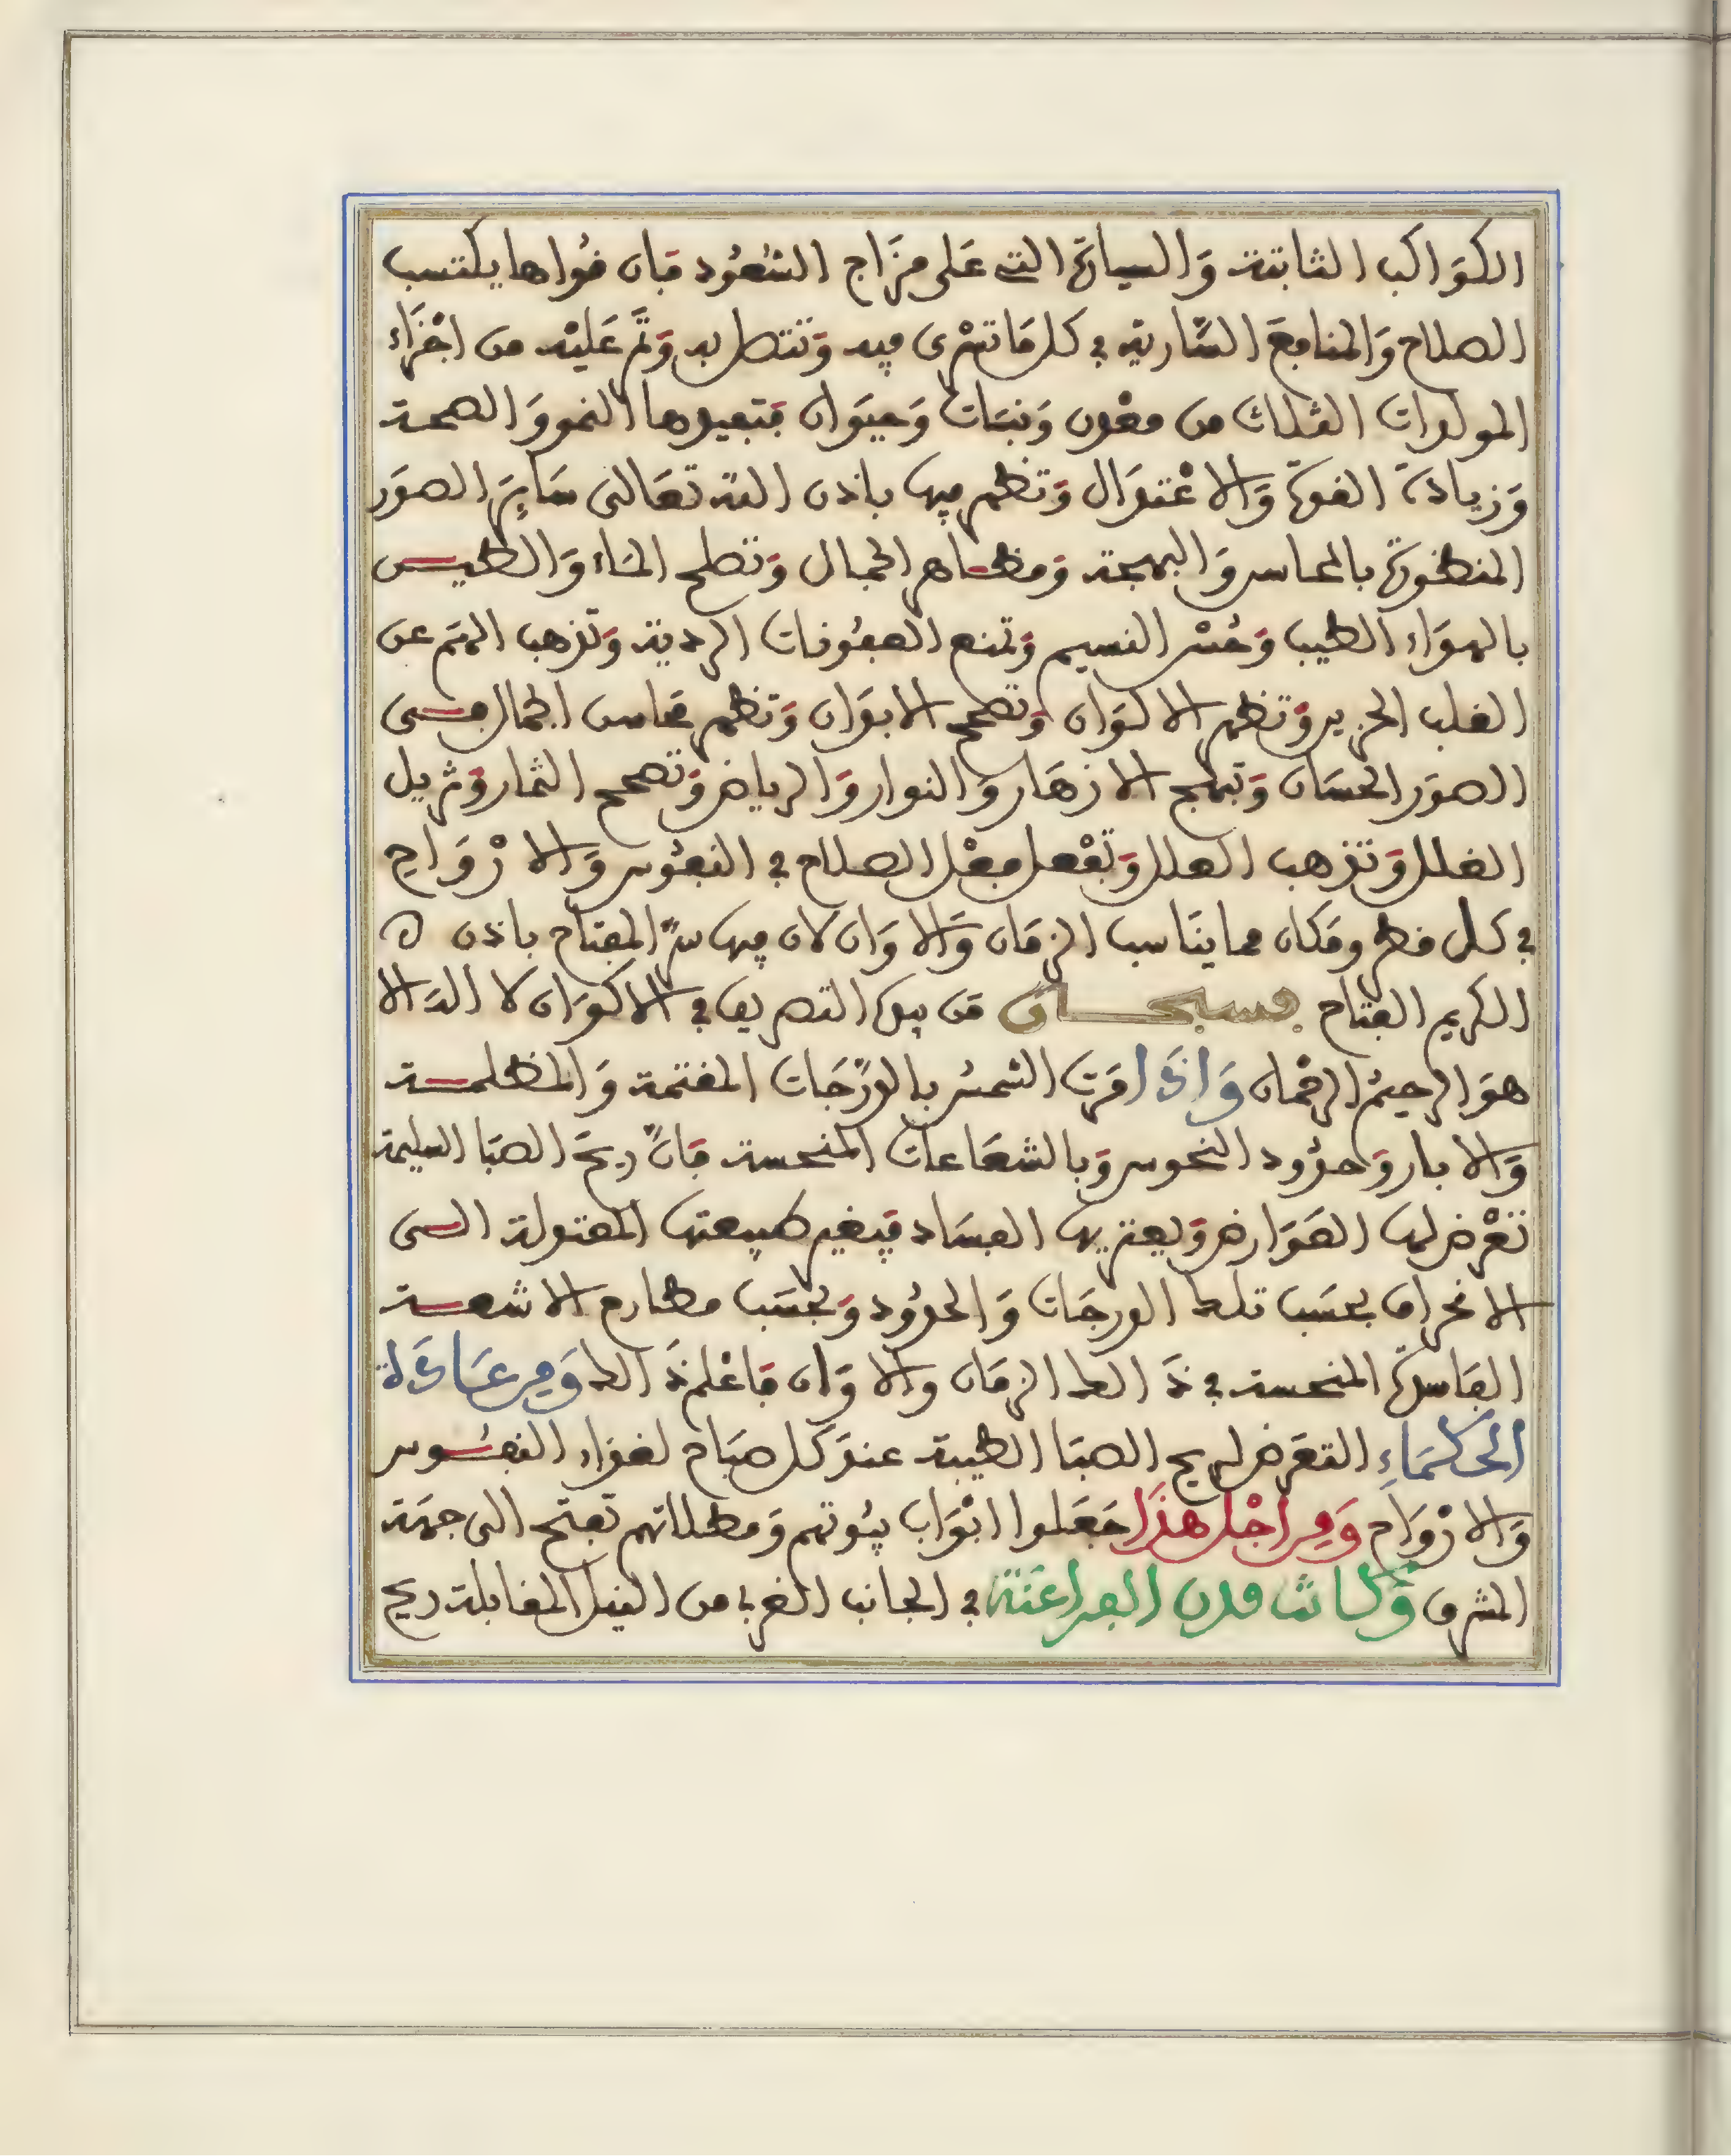 الكوَاكب الثابتة وَالسيارَة التى عَلى مزَاج السُّعُود فإن قُواها يكتسب
الصلاح وَالمنافعَ السَّارية فى كل مَا تسْرى فيه وَتتصل به وَتمَّ عَليْه من اجْزَاء
المولدات الثلاث من معْدن وَنبَات وَحيَوان فتفيدها النمو وَالصحة
وَزيادَة القوة وَالاعْتدَال وَتظهر فيها باذن الله تعَالى سَايِرَ الصوَر
المنظورَة بالمحاسن وَالبهجة وَمظاهر الجمال وَتصلح المَاء وَالطيـــن
بالهوَاء الطيب وَحُسْن النسيم وَتمنع العفُونات الردية وَتذهب الهَم عن
القلب الحزين وَتظهر الاكوَان وَتصحح الابدَان وَتظهر محَاسن الجمال فــى
الصوَر الحسَان وَتبهج الازهَار وَالنوار وَالرياض وَتصحح الثمار وَتزيل
الغلل وَتذهب العلل وَتفْعل فعْل الصلاح فى النفُوس وَالارْوَاح
فى كل قطر ومَكان مما ينَاسب الزمَان وَالاوَان لان فيها سرّ المفتاح باذن ه
الكريم الفتاح فسبحـــان مَن بيده التصريف فى الاكوَان لا اله الا
هوَ الرحيمُ الرحْمان وَاذَا مَرت الشمسُ بالدرَجَات المقتمة وَالمظلمــة
وَالابار وَحدُود النحوس وَبالشعَاعات المنحسة فانّ ريحَ الصبَا السليمة
تعْرض لها العَوَارض وَيعتريها الفسَاد فيغير طبيعتها المعتدلة الــى
الانحراف بحسَب تلك الدرجَات وَالحدُود وَبحسَب مطارح الاشعــة
الفَاسدَة المنحسة فى ذَالك الزمَان وَالاوَان فاعْلم ذَالك وَمن عَادَة
الحكمَاءِ التعَرض لريح الصبَا الطيبة عندَ كل صبَاح لغذاء النفُــوس
وَالارْوَاح وَمن اجْل هذَا جَعَلوا ابْوَاب بيُوتهم وَمطلاتهم تفتح الى جهَة
المشرق وَكانت مدن الفراعنة فى الجانب الغربى من النيل المقابلة ريح